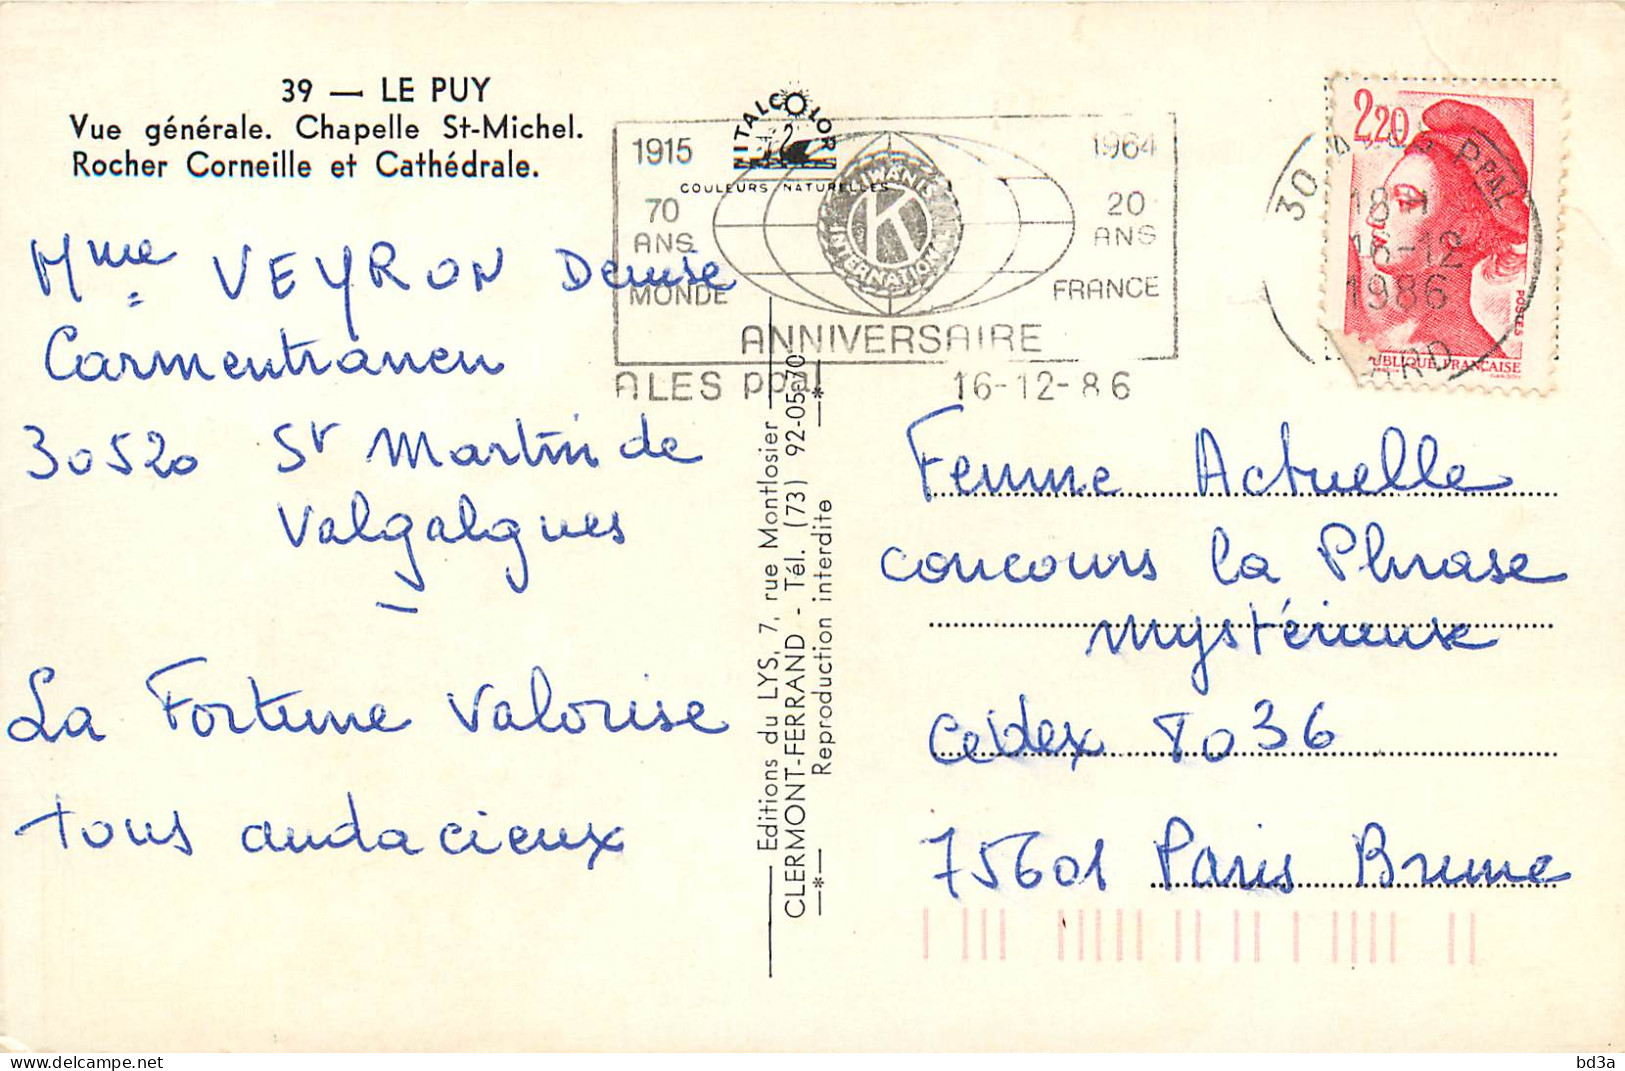 39 — LE PUY
Vue générale. Chapelle St-Michel.
Rocher Corneille et Cathédrale.
NITALCOLOR
COULEURS NATURELLES
1915
70
ANS
MONDE
KIWANIS
K
INTERNATIONAL
1964
20
ANS
FRANCE
ANNIVERSAIRE
ALES PPAL 16-12-86
2,20
POSTES
UBLIQUE FRANÇAISE
30 ALES PPAL
18 H
16-12
1986
GARD
Mme VEYRON Denise
Carmentranen
30520 St Martin de
Valgalgues
La Fortune Valorise
tous audacieux
Editions du LYS, 7, rue Montlosier
CLERMONT-FERRAND - Tél. (73) 92-05-70
Reproduction interdite
Femme Actuelle
concours la Phrase
mystérieuse
Cedex 8036
75601 Paris Brune
bd3a